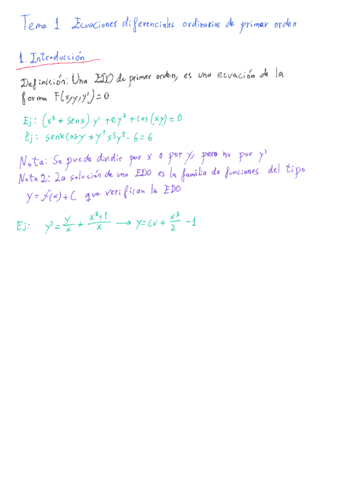 Tema 1 Ecuaciones diferenciales ordinarias de primer orden
1. Introducción
Definición: Una EDO de primer orden, es una ecuación de la
forma F(x,y,y')=0
Ej: (x³ + senx) y' + e y³ + cos(xy)=0
Ej: senx cosy + y' x⁵y² - 6 = 6
Nota: Se puede dividir por x o por y, pero no por y'
Nota 2: La solución de una EDO es la familia de funciones del tipo
y = f(x) + C que verifican la EDO
Ej: y' = y/x + (x²+1)/x → y = Cx + x²/2 - 1